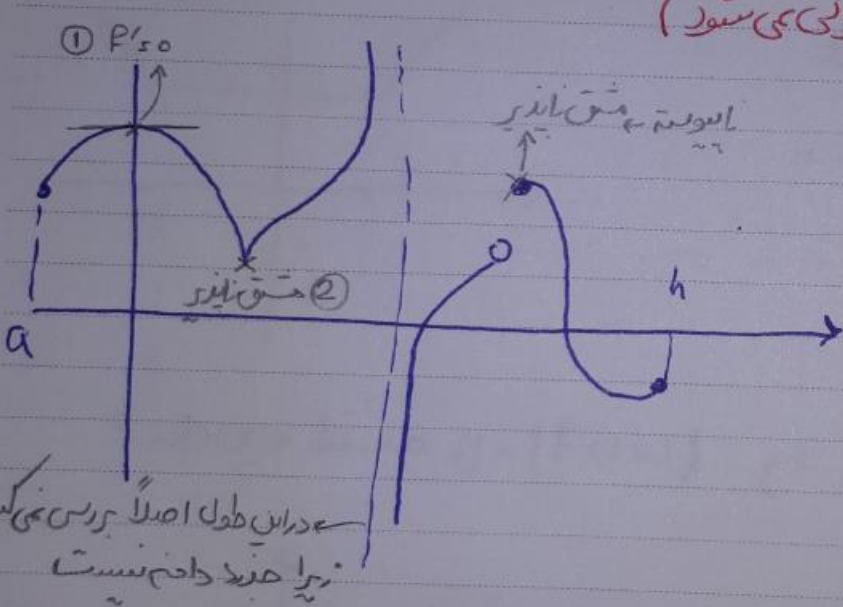 می شود )
① f'=0
ناپیوسته ← مشتق ناپذیر
② مشتق ناپذیر
a
h
← در این طول اصلاً بررسی نمی
زیرا جزء دامنه نیست